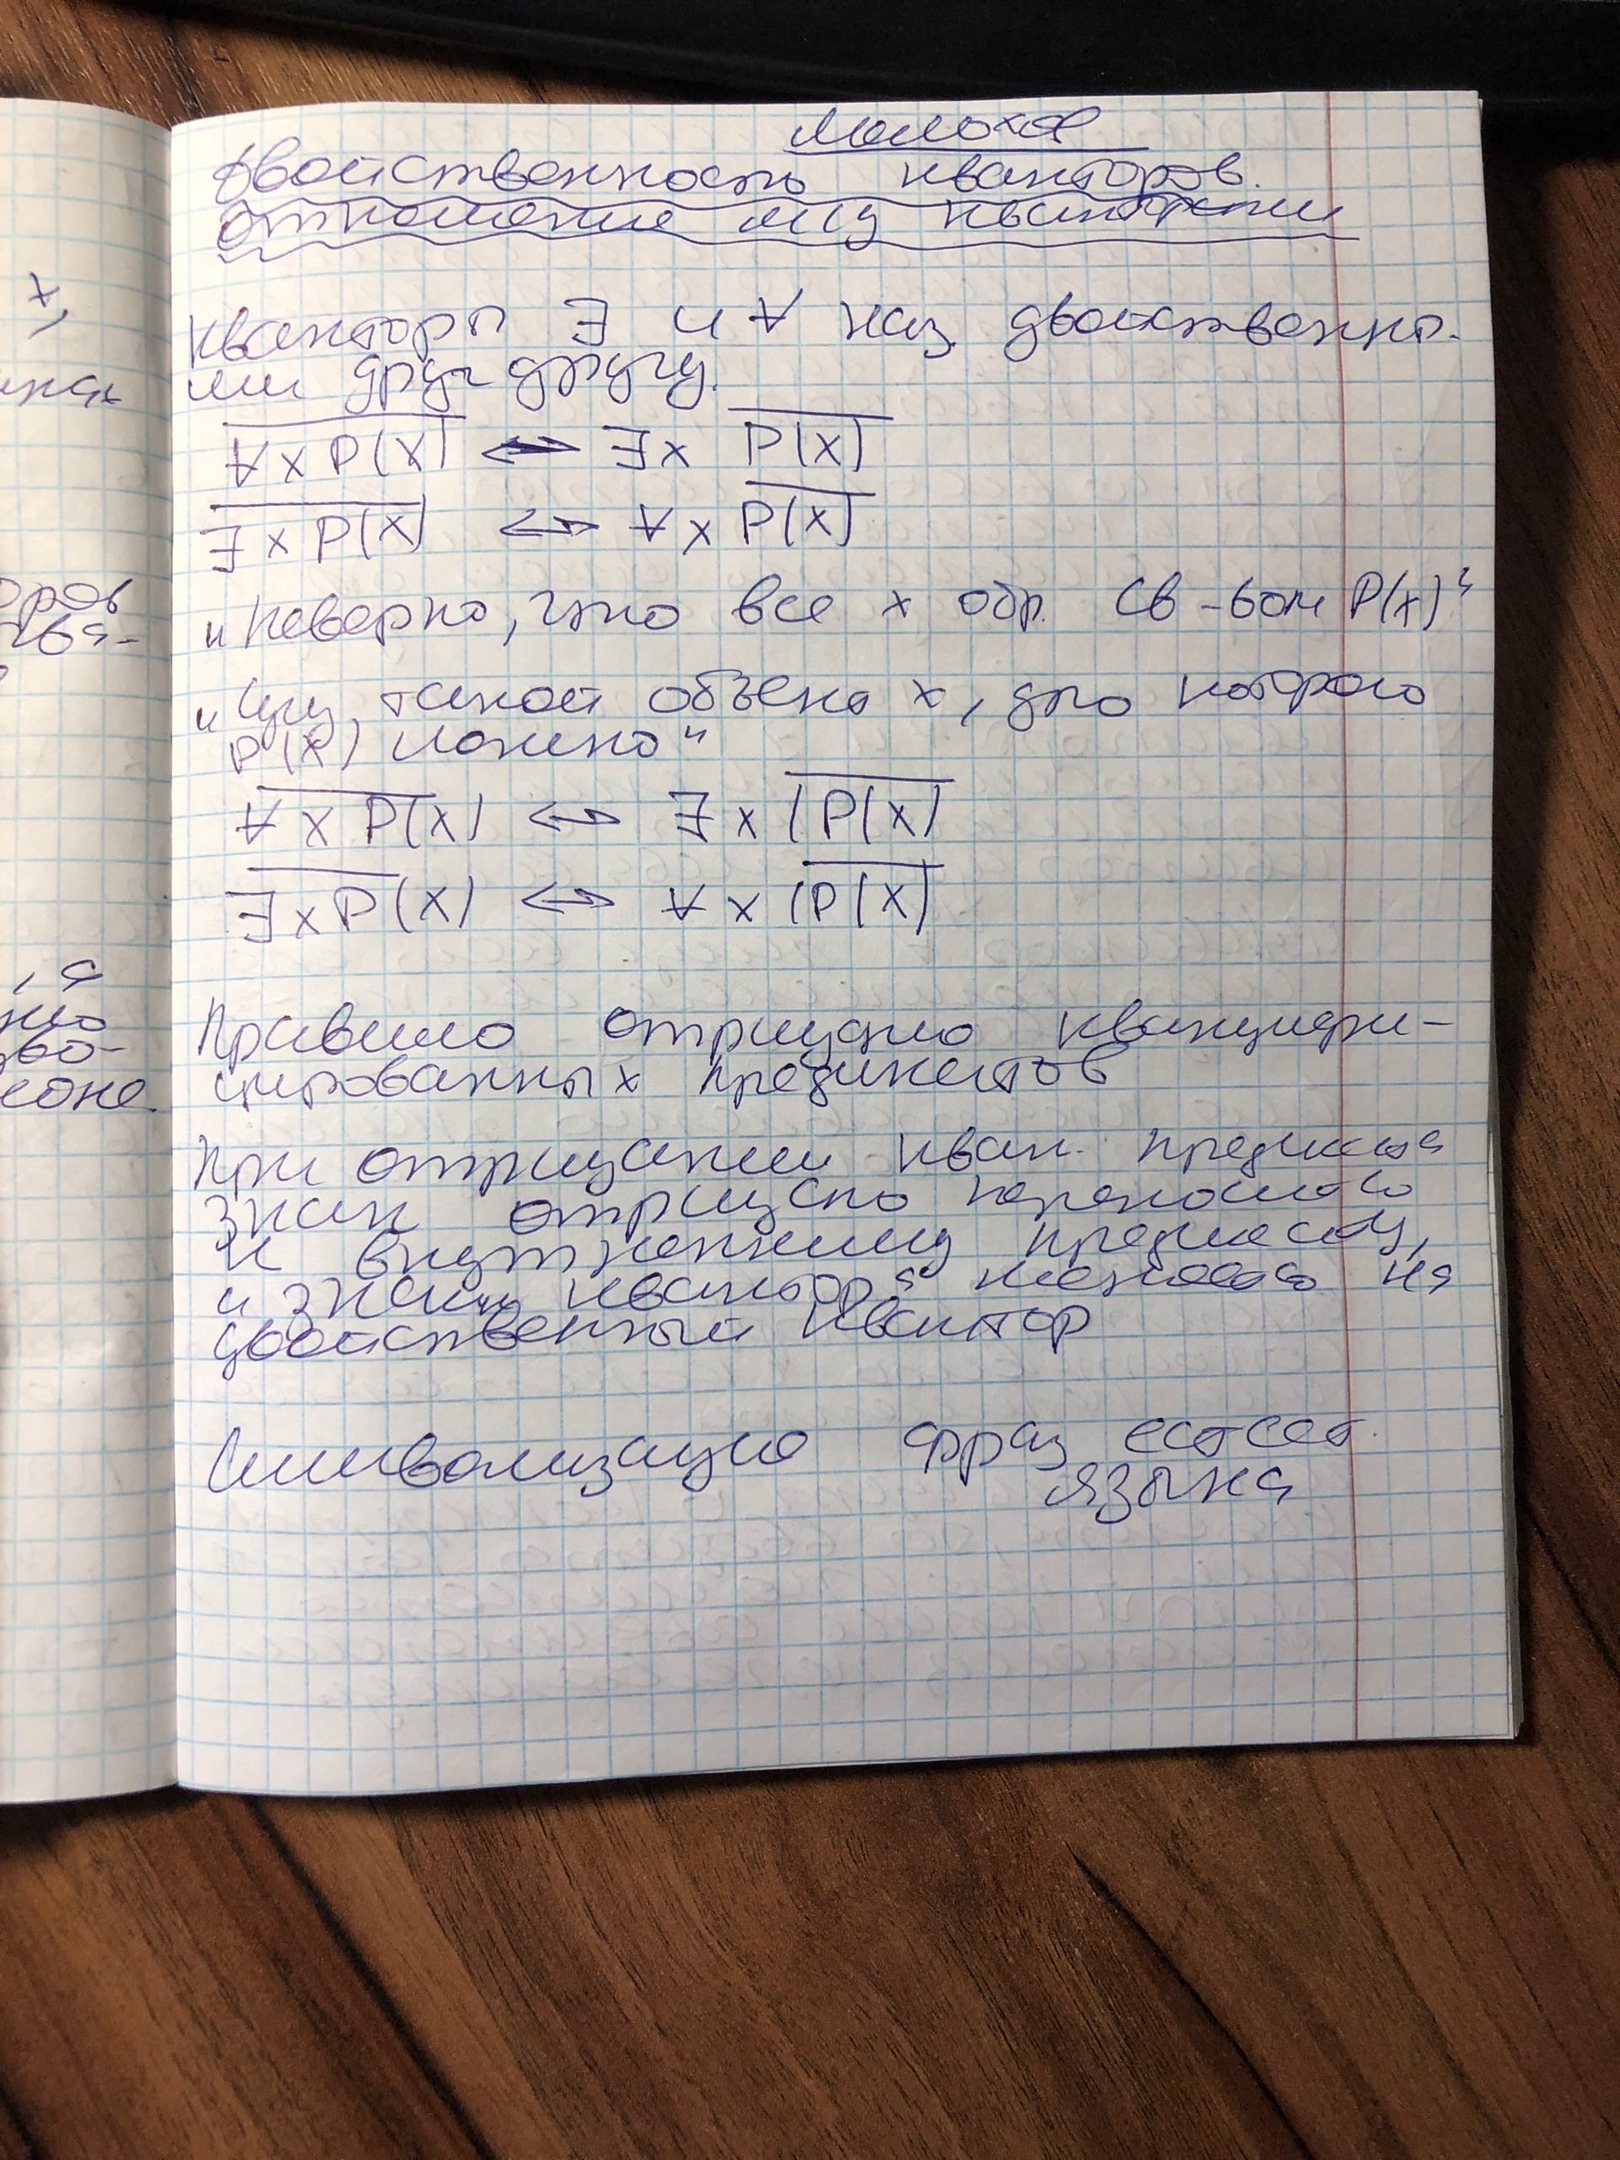 Молохов
Двойственность кванторов.
отношение м/у кванторами
х,
Кванторы ∃ и ∀ наз двойственны-
ми друг другу.
∀x P(x) ⟷ ∃x P(x)
∃x P(x) ⟷ ∀x P(x)
оров
„Неверно, что все x обр. св-вом P(x)“
„Сущ такой объект x, для которого
P(x) ложно“
∀x P(x) ⟷ ∃x (P(x)
∃x P(x) ⟷ ∀x (P(x)
, а
Правило отрицания квантифи-
цированных предикатов
При отрицании кван. предиката
знак отрицания переносится
к внутреннему предикату,
и знак квантора меняется на
двойственный квантор
Символизация фраз естест.
языка